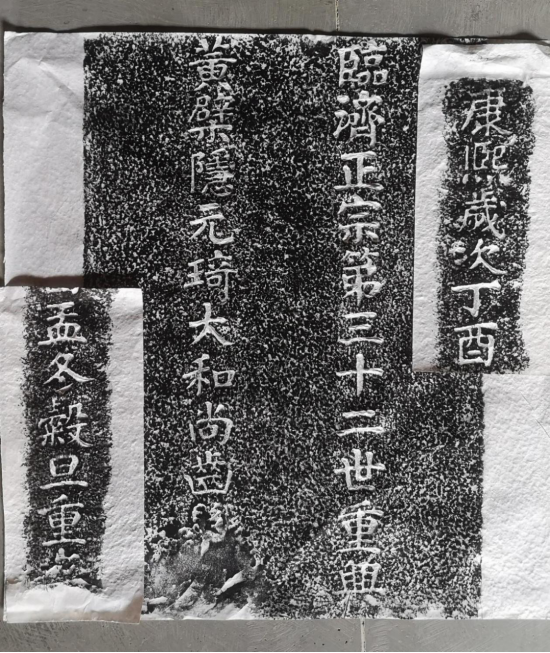 康熙歲次丁酉
臨濟正宗第三十二世重興
黃檗隱元琦大和尚齒
孟冬穀旦重立